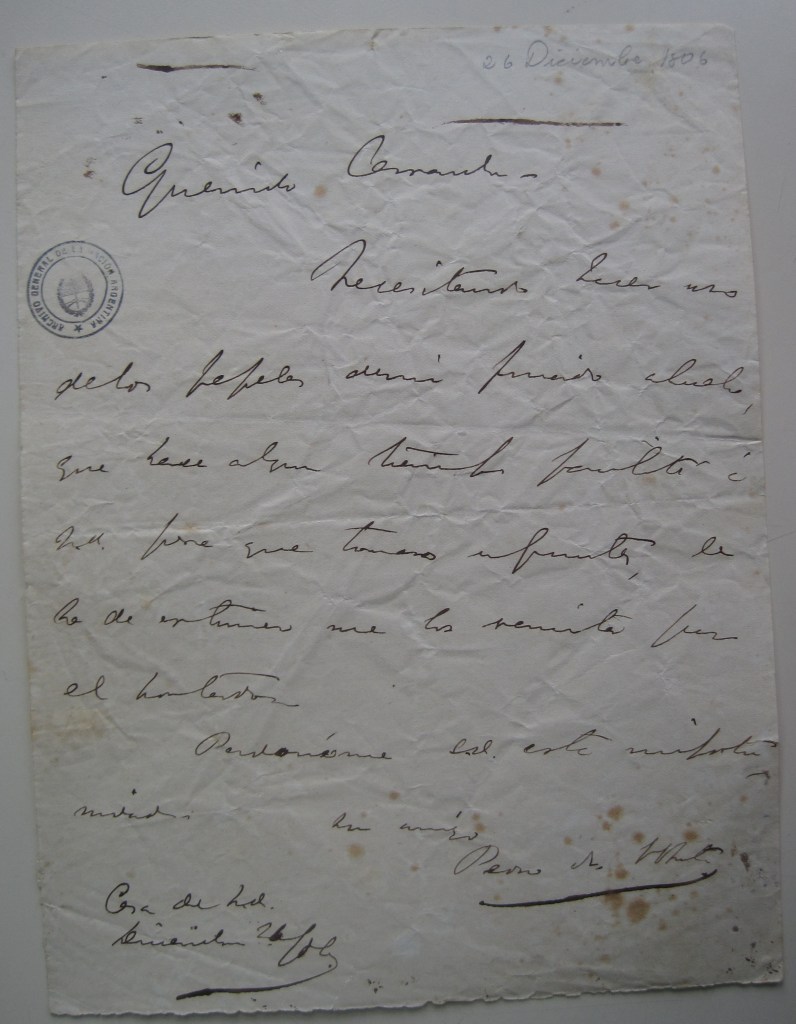 26 Diciembre 1806
Querido
ARCHIVO GENERAL DE LA NACION ARGENTINA
Necesitando hacer uso
de los papeles de mi finado abuelo,
que hace algun tiempo facilité á
Ud. para que tomara apuntes, le
he de estimar me los remita por
el portador
Perdoname Ud. esta inoportu
nidad. Su amigo
Pedro
Casa de Ud.
Diciembre 26